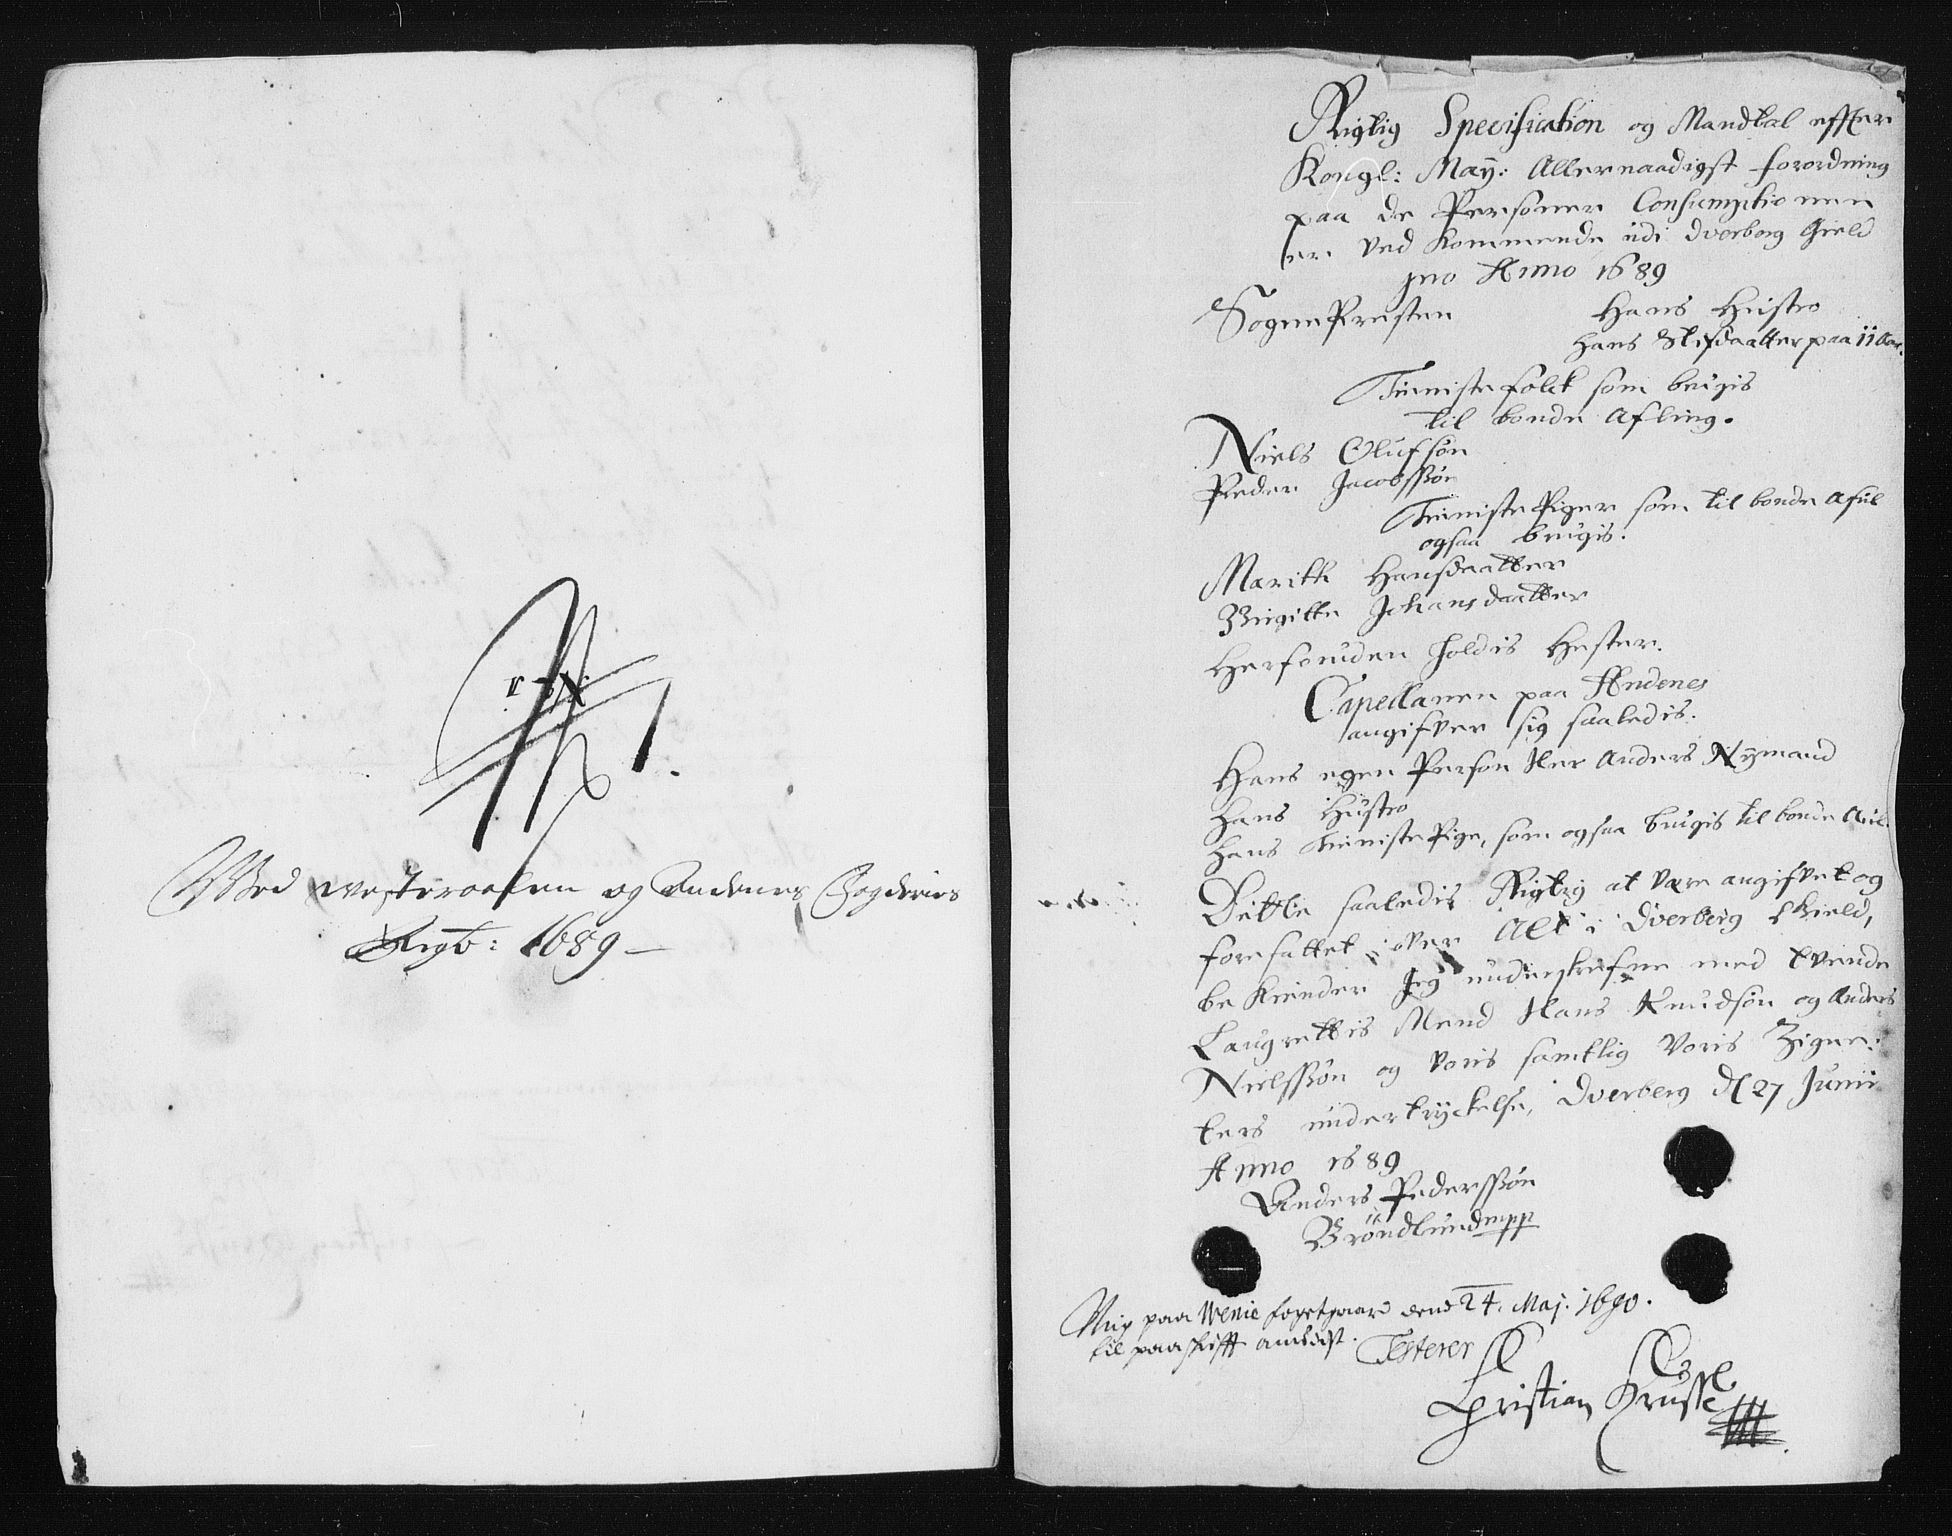 No 1.
Med westeraalen og Andenes Fogderies
Regb: 1689 –
Rigtig Specification og Mandtal effter
Kongl: May: Allernaadigst forordning
paa de Personer Consumptionen
er ved kommende udi Dverberg Gield
pro Anno 1689
SognePresten Hans Hustro
Hans Stifdaatter paa 11 Aar.
Tieniste folck som brugis
til bonde Afling.
Niels Olufsøn
Peder Jacobssøn
Tieniste Piger som til bonde Afil
ogsaa brugis.
Maritte Hansdaatter
Birgitte Johansdaatter
Herforuden holdis Hester.
Capellanen paa Andenes
angifver sig saaledis.
Hans egen Person Her Anders Nymand
Hans Hustro
Hans Tieniste Pige, som ogsaa brugis til bonde Auil.
Dette saaledis Rigtig at være angifvet og
forefattet over Alt i Dverberg Gield,
bekiender Jeg underskrefne med tvende
Laugrettis Mend Hans Knudsøn og Anders
Nielssøn og voris samtlig Voris Zigne-
ters undertryckelse, Dverberg d 27 Junii
Anno 1689
Anders Pederssøn
Bröndlund mpp
Mig paa Wenie fogetgaard dend 24. Maj. 1690.
til paaskrifft anviist. Testerer
Christian Krusse